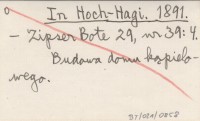 In Hoch-Hagi. 1891.
- Zipser Bote 29, nr 39: 4.
Budowa domu kąpielo-
wego.